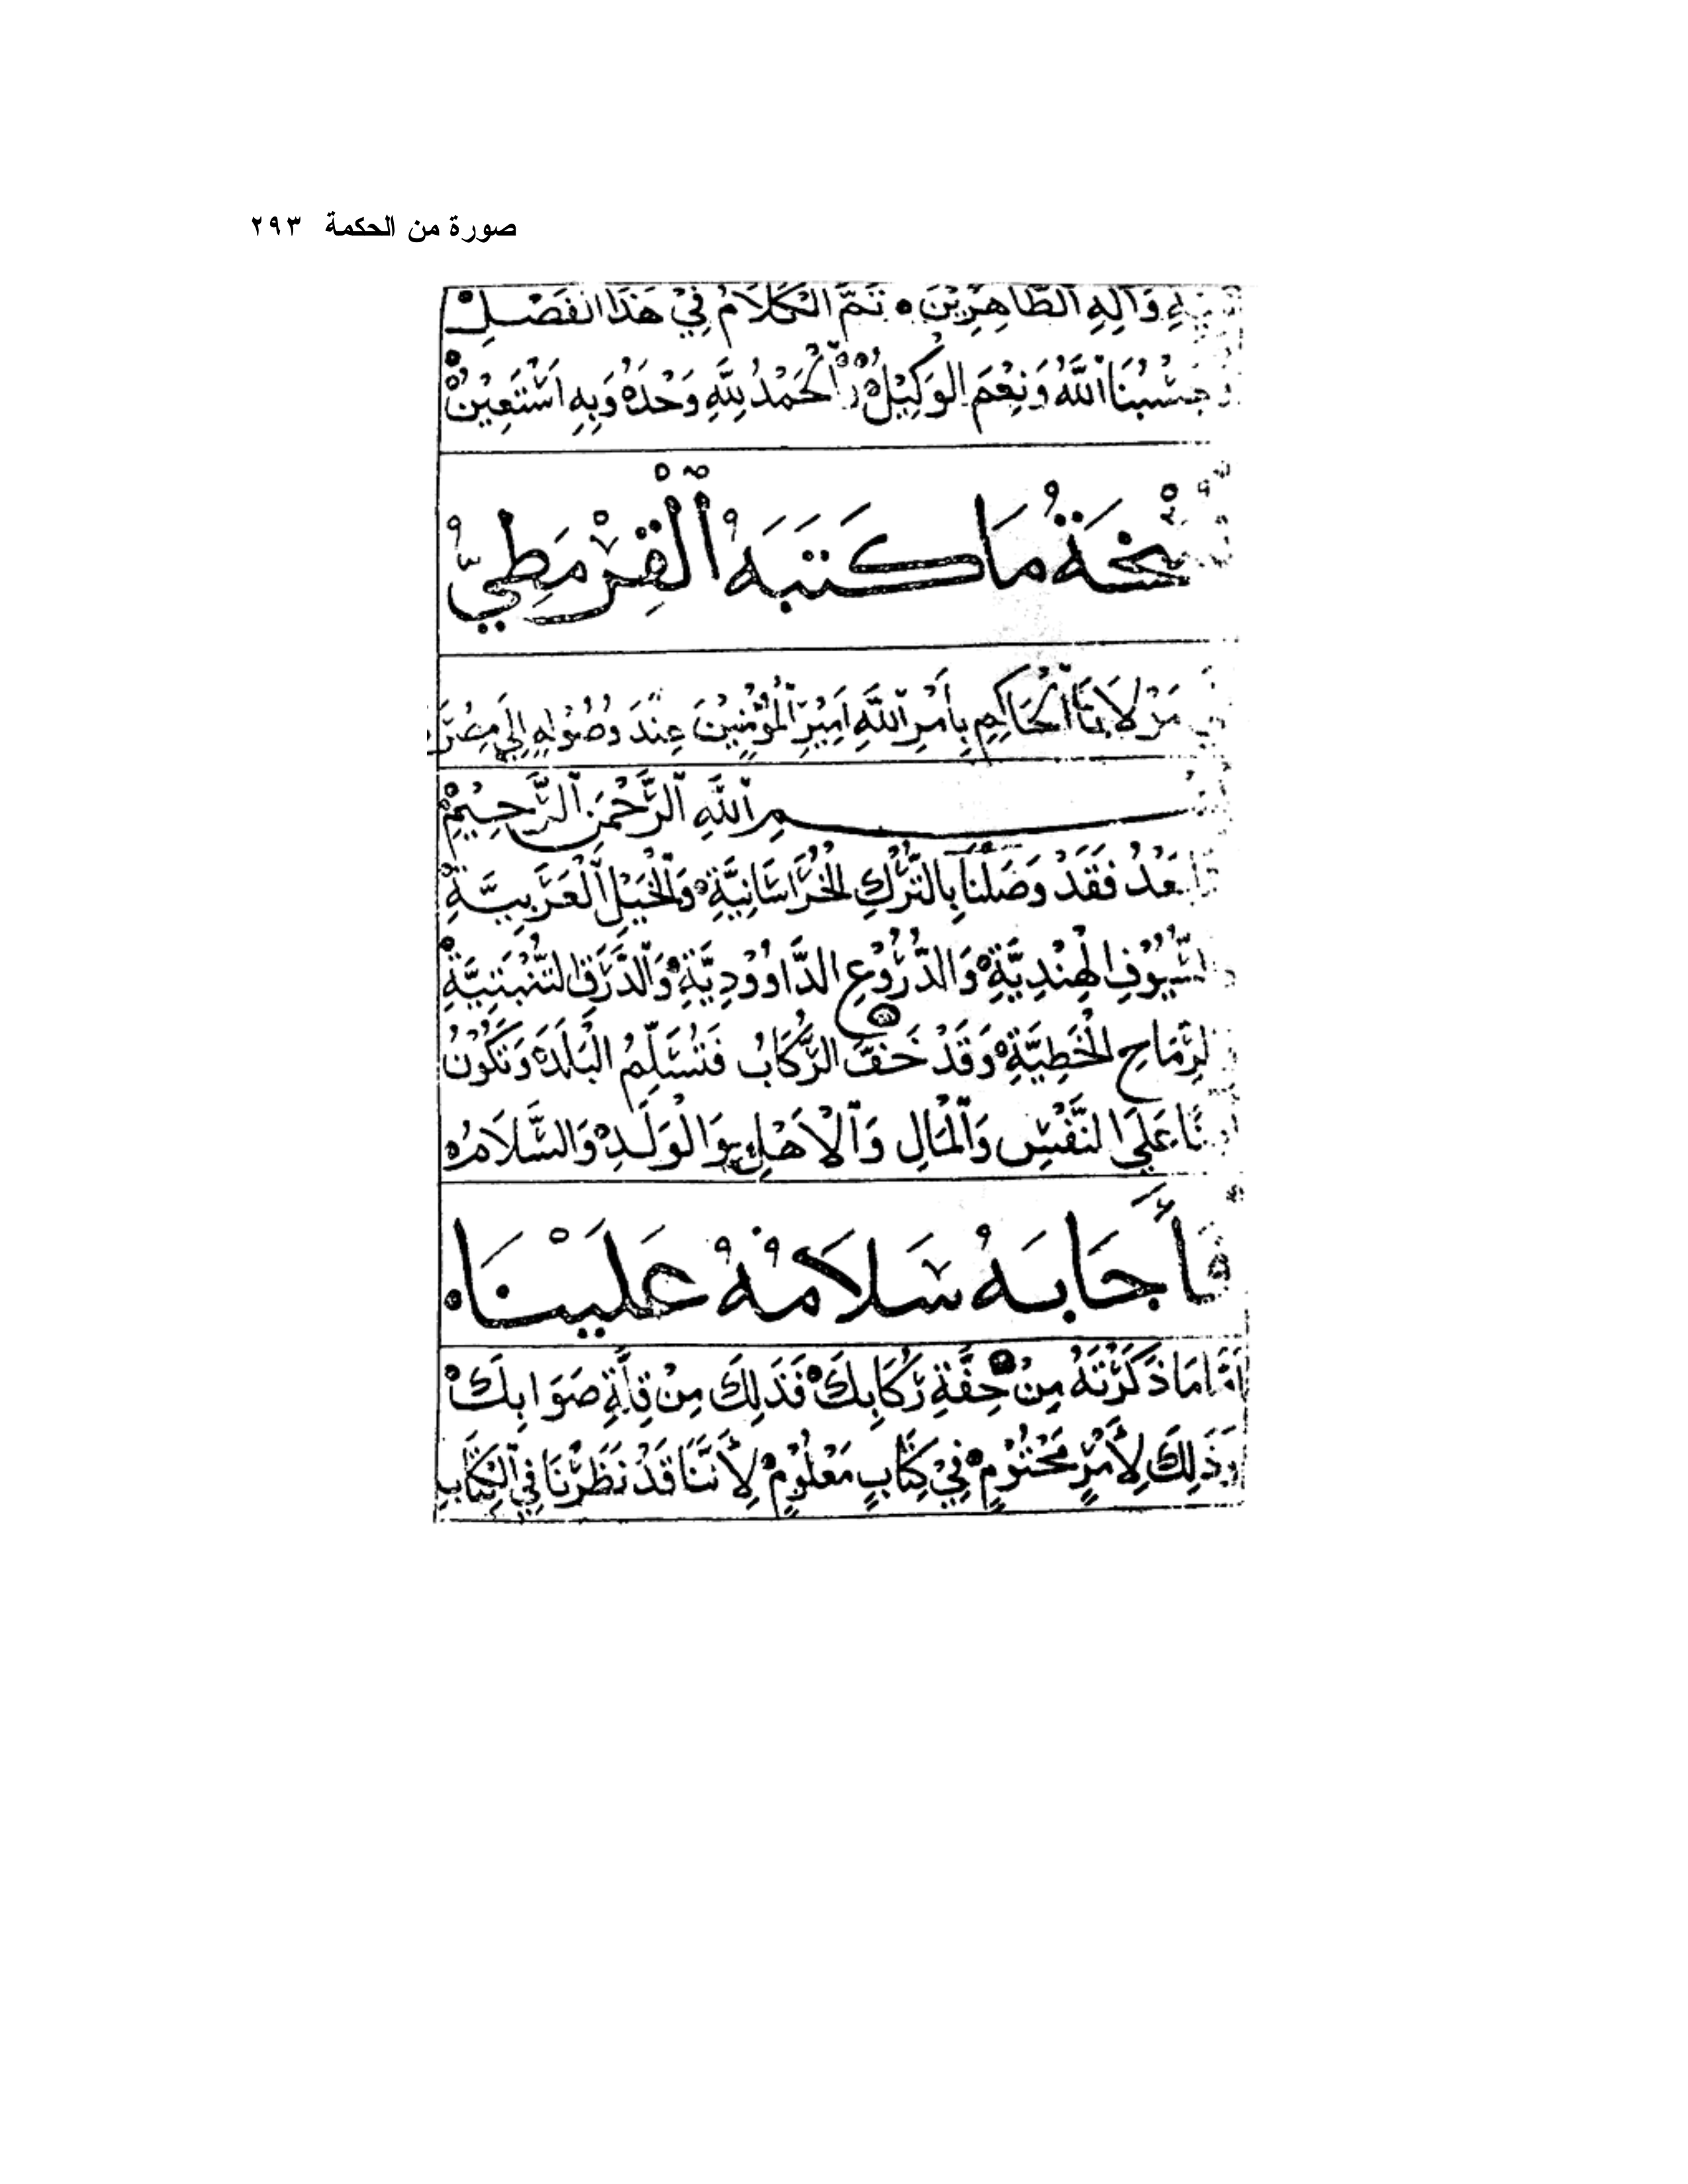 صورة من الحكمة ٢٩٣
وَآلِهِ الطَّاهِرِيْنَ ۰ تَمَّ الْكَلَامُ فِيْ هَذَا الْفَصْلِ
وَحَسْبُنَا اللَّهُ وَنِعْمَ الْوَكِيْلُ وَالْحَمْدُ لِلَّهِ وَحْدَهُ وَبِهِ أَسْتَعِيْنُ
نُسْخَةُ مَا كَتَبَهُ الْقِرْمَطِيّ
مَوْلَانَا الْحَاكِمِ بِأَمْرِ اللَّهِ أَمِيْرِ الْمُؤْمِنِيْنَ عِنْدَ وُصُوْلِهِ إِلَى مِصْرَ
بِسْمِ اللَّهِ الرَّحْمَنِ الرَّحِيْمِ
بَعْدُ فَقَدْ وَصَلْنَا بِالتُّرْكِ الْخُرَاسَانِيَّةِ وَالْخَيْلِ الْعَرَبِيَّةِ
السُّيُوْفِ الْهِنْدِيَّةِ وَالدُّرُوْعِ الدَّاوُوْدِيَّةِ وَالدَّرَقِ التُّنْبَتِيَّةِ
الرِّمَاحِ الْخَطِيَّةِ وَقَدْ خَفَّ الرِّكَابُ فَتُسَلِّمُ الْبَلَدَ وَتَكُوْنُ
عَلَى النَّفْسِ وَالْمَالِ وَالْأَهْلِ وَالْوَلَدِ وَالسَّلَامُ
فَأَجَابَهُ سَلَامُهُ عَلَيْنَا
أَمَّا مَا ذَكَرْتَهُ مِنْ خِفَّةِ رِكَابِكَ فَذَلِكَ مِنْ قِلَّةِ صَوَابِكَ
وَذَلِكَ لِأَمْرٍ مَحْتُوْمٍ فِيْ كِتَابٍ مَعْلُوْمٍ لِأَنَّنَا قَدْ نَظَرْنَا فِي الْكِتَابِ